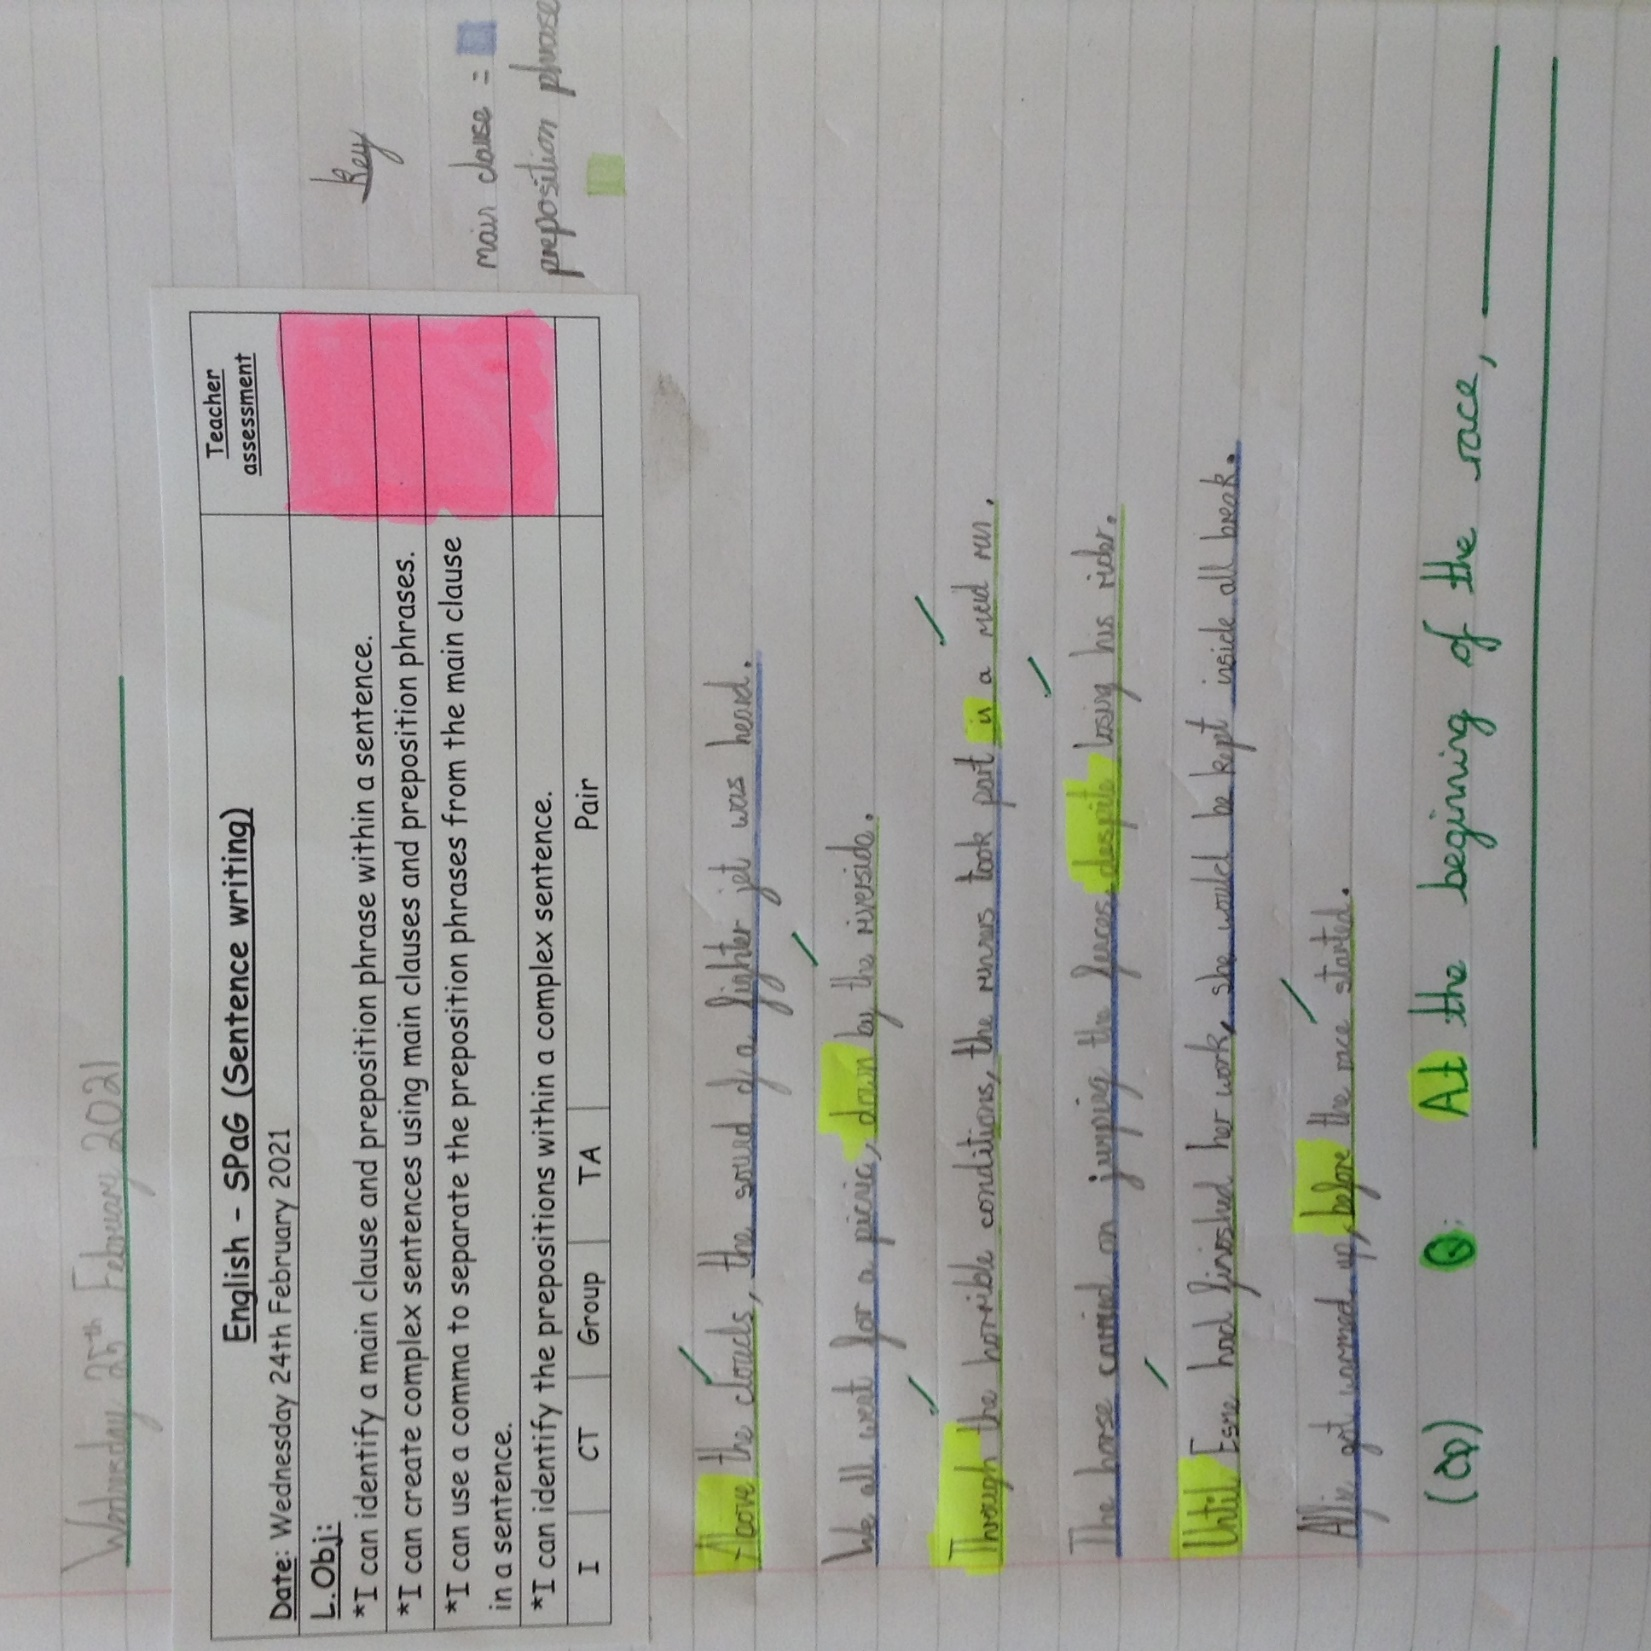 Wednesday 25th February 2021
English - SPaG (Sentence writing)
Teacher assessment
Date: Wednesday 24th February 2021
L.Obj:
*I can identify a main clause and preposition phrase within a sentence.
*I can create complex sentences using main clauses and preposition phrases.
*I can use a comma to separate the preposition phrases from the main clause
in a sentence.
*I can identify the prepositions within a complex sentence.
I CT Group TA Pair
Key
main clause =
preposition phrase
Above the clouds, the sound of a fighter jet was heard.
We all went for a picnic, down by the riverside.
Through the horrible conditions, the runners took part in a mud run.
The horse carried on jumping the fences, despite losing his rider.
Until Esme had finished her work, she would be kept inside all break.
Alfie got warmed up, before the race started.
: At the beginning of the race,